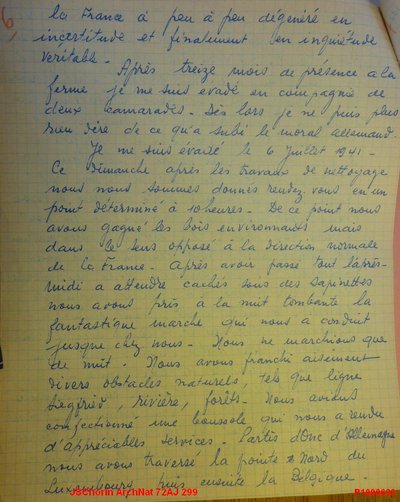 la France a peu à peu dégénéré en
incertitude et finalement en inquiétude
véritable.
Après treize mois de présence a la
ferme je me suis évadé en compagnie de
deux camarades. Dès lors je ne puis plus
rien dire de ce qu'a subi le moral allemand.
Je me suis évadé le 6 Juillet 1941.
Ce Dimanche après les travaux de nettoyage
nous nous sommes donnés rendez-vous en un
point déterminé à 10 heures. De ce point nous
avons gagné les bois environnants mais
dans le sens opposé à la direction normale
de la France. Après avoir passé tout l'après-
midi a attendre cachés sous des sapinettes
nous avons pris à la nuit tombante la
fantastique marche qui nous a conduit
jusque chez nous. Nous ne marchions que
de nuit. Nous avons franchi aisément
divers obstacles naturels, tels que ligne
Siegfried, rivière, forêts. Nous avions
confectionné une boussole qui nous a rendu
d'appréciables services. Partis donc d'Allemagne
nous avons traversé la pointe Nord du
Luxembourg puis ensuite la Belgique.
JSChorin ArchNat 72AJ 299